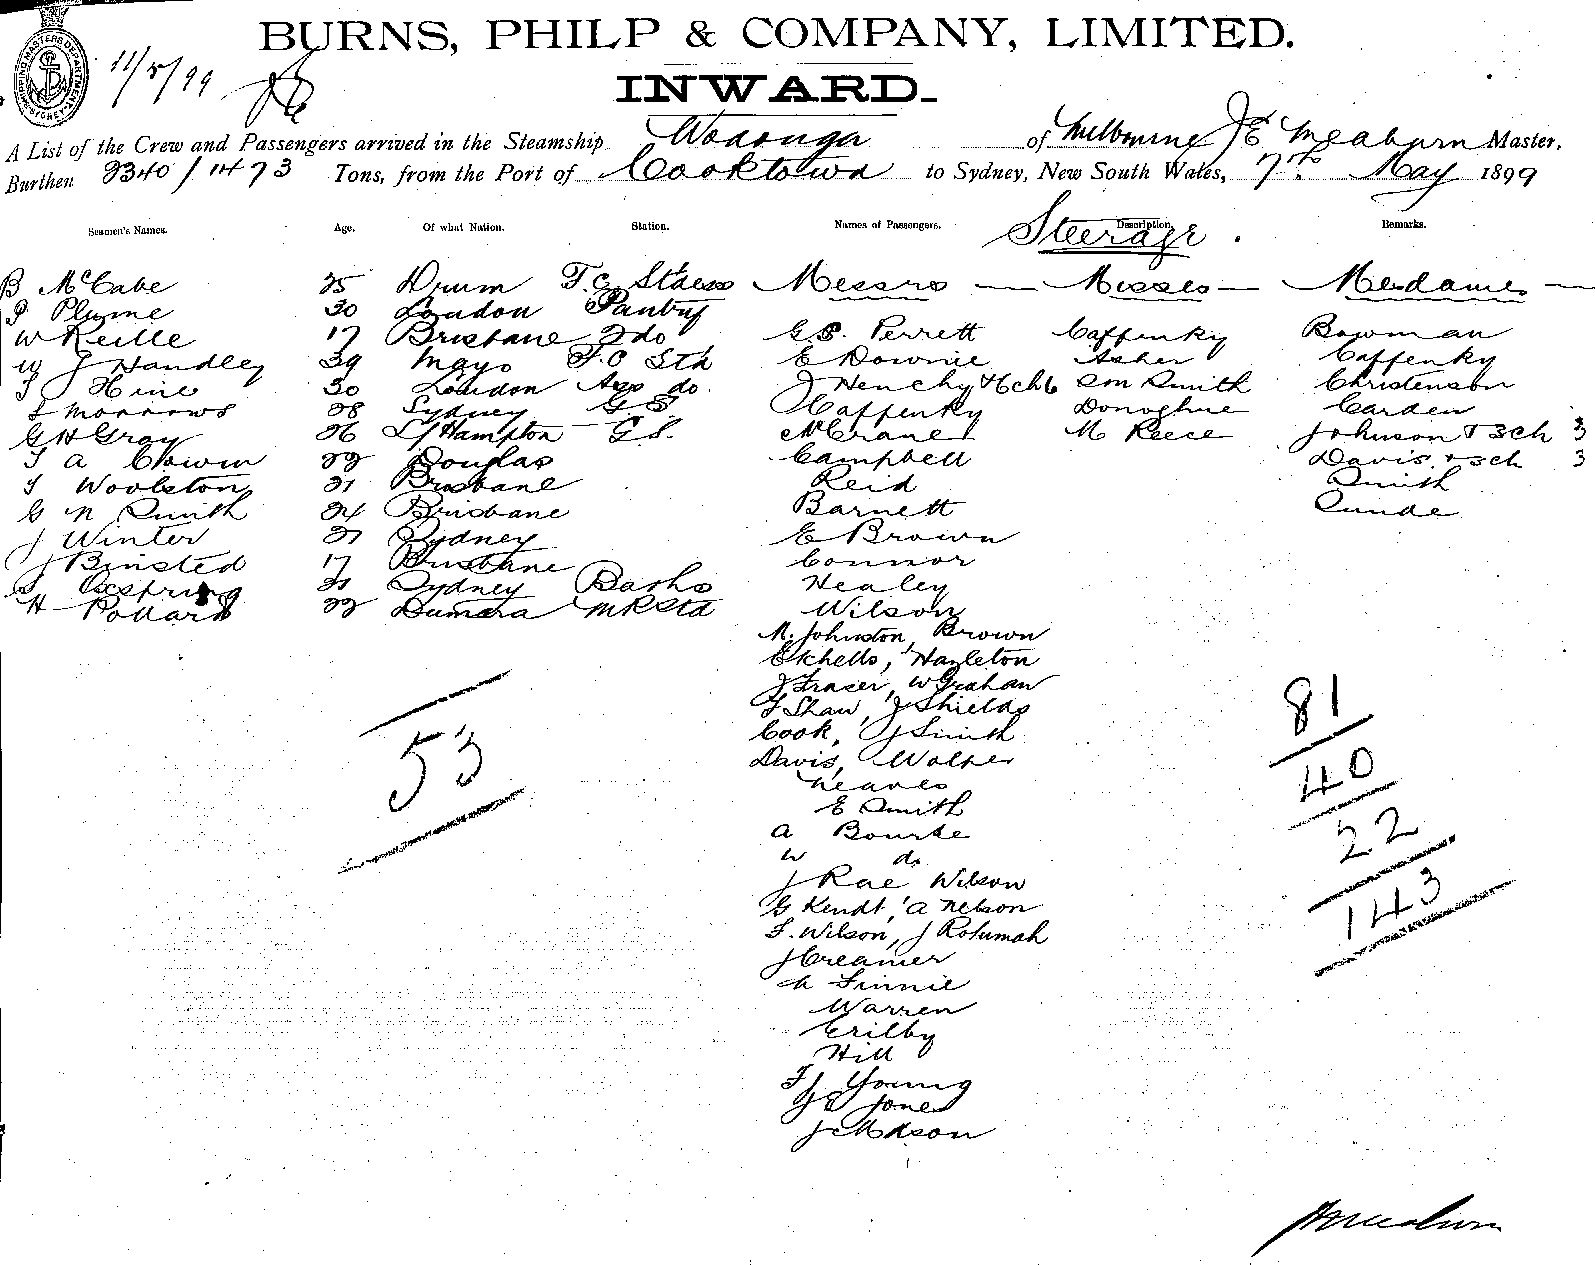 BURNS, PHILP & COMPANY, LIMITED.
11/5/99
INWARD.
A List of the Crew and Passengers arrived in the Steamship Wodonga of Melbourne J E Meaburn Master,
Burthen 2340/1473 Tons, from the Port of Cooktown to Sydney, New South Wales, 7th May 1899
Seamen's Names. Age. Of what Nation. Station. Names of Passengers. Description. Remarks.
Steerage.
B McCabe 25 Drum F.C. Stdess Messrs — Misses — Mesdames —
P Plume 30 London Pantry
W Reille 17 Brisbane 2 do G.S. Perrett Caffenky Bowman
W J Handley 39 Mayo F.C Std E Downie Asher Caffenky
T Hine 30 London Ass do. J Henchy & 6 ch 6 Smith Christenson
Morrows 28 Sydney G S Caffenky Donoghue Carden
G H Gray 26 L/Hampton G S. McCrane M Reece Johnson & 3 ch 3
T A 22 Douglas Campbell Davis & 3 ch 3
T Woolston 21 Brisbane Reid Smith
G N Smith 24 Brisbane Barnett Sunde
J Winter 21 Sydney E Brown
J Binsted 17 Brisbane Connor
21 Sydney Healey
H Pollard 22 M R Std Wilson
M. Johnston, Brown
Etchells, Hazleton
J Fraser, W Graham
F Shaw, J Shields
Cook, J Smith
Davis, Walker
Neaves
E Smith
A Bourke
W do
J Rae Wilson
G Kendt, A Nelson
F. Wilson, J Rotumah
J Creamer
Finnie
Warren
Erilby
Hill
F J Young
J E Jones
53
81
40
22
143